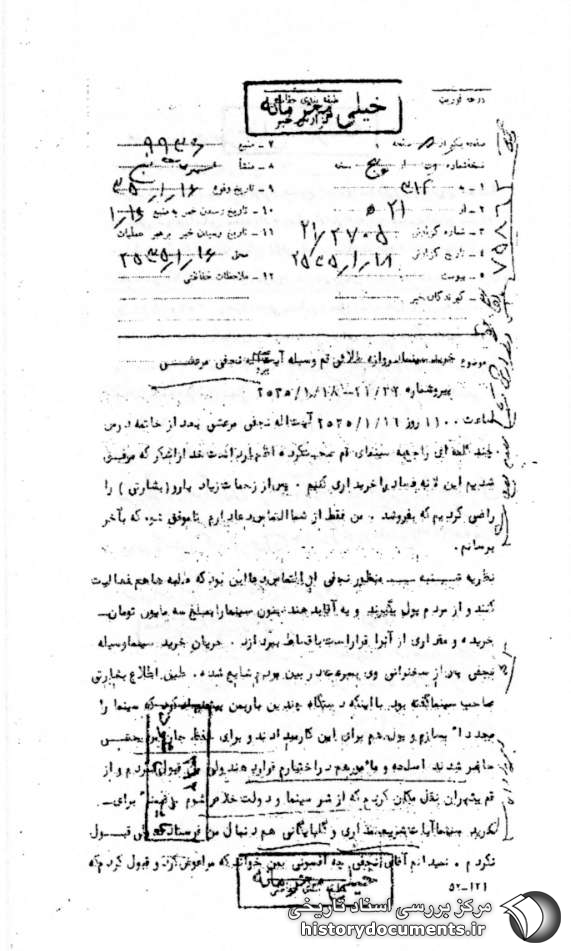 خیلی محرمانه
طبقه بندی حفاظتی
گزارش خبر
درجه فوریت
صفحه یکم از صفحه
۷ - منبع ۹۹۳۶
نسخه شماره از پنج نسخه
۸ - منشأ
۱ - به ۳۱۲
۹ - تاریخ وقوع ۳۵/۱/۱۶
۲ - از ۲۱ ه
۱۰ - تاریخ رسیدن خبر به منبع ۱/۱۶
۳ - شماره گزارش ۲۱/۲۷۰۵
۱۱ - تاریخ رسیدن خبر به رهبر عملیات
۴ - تاریخ گزارش ۲۵۳۵/۱/۱۸
محل ۲۵۳۵/۱/۱۶
۵ - پیوست
۱۲ - ملاحظات حفاظتی
۶ - گیرندگان خبر
موضوع خرید سینما دروازه طلائی قم وسیله آیت اله نجفی مرعشی
پیرو شماره ۲۱/۲۷ - ۲۵۳۵/۱/۱۸
ساعت ۱۱۰۰ روز ۲۵۳۵/۱/۱۶ آیت اله نجفی مرعشی بعد از خاتمه درس
چند کلمه ای راجع به سینمای قم صحبت کرد خدا را شکر که موفق
شدیم این لانه فساد را خریداری کنیم . پس از زحمات زیاد یارو (بشارتی) را
راضی کردیم که بفروشد . من فقط از شما التماس دعا دارم تا موفق شوم که بآخر
برسانم .
نظریه شنبه منظور نجفی از التماس دعا این بود که طلبه ها هم فعالیت
کنند و از مردم پول بگیرند و به آقا بدهند چون سینما را بمبلغ سه ملیون تومان
خریده و مقداری از آنرا قرار است باقساط بپردازد . جریان خرید سینما وسیله
نجفی بعد از سخنرانی وی بسرعت در بین مردم شایع شده . طبق اطلاع بشارتی
صاحب سینما گفته بود با اینکه دستگاه چندین بار بمن پیشنهاد کرد که سینما را
مجددا" بسازم و پول هم برای این کار میدادند و برای حفظ جان من حتی
حاضر شدند اسلحه و مأمور هم در اختیارم قرار دهند ولی من قبول نکردم و از
قم بتهران نقل مکان کردم که از شر سینما و دولت خلاص شوم و ضمنا" برای
خرید سینما آیات شریعتمداری و گلپایگانی هم دنبال من فرستادند ولی قبول
نکردم . نمیدانم آقای نجفی چه افسونی بمن خواند که مرا عوض کرد و قبول کردم که
خیلی محرمانه
۵۲-۱۲۱
مرکز بررسی اسناد تاریخی
historydocuments.ir